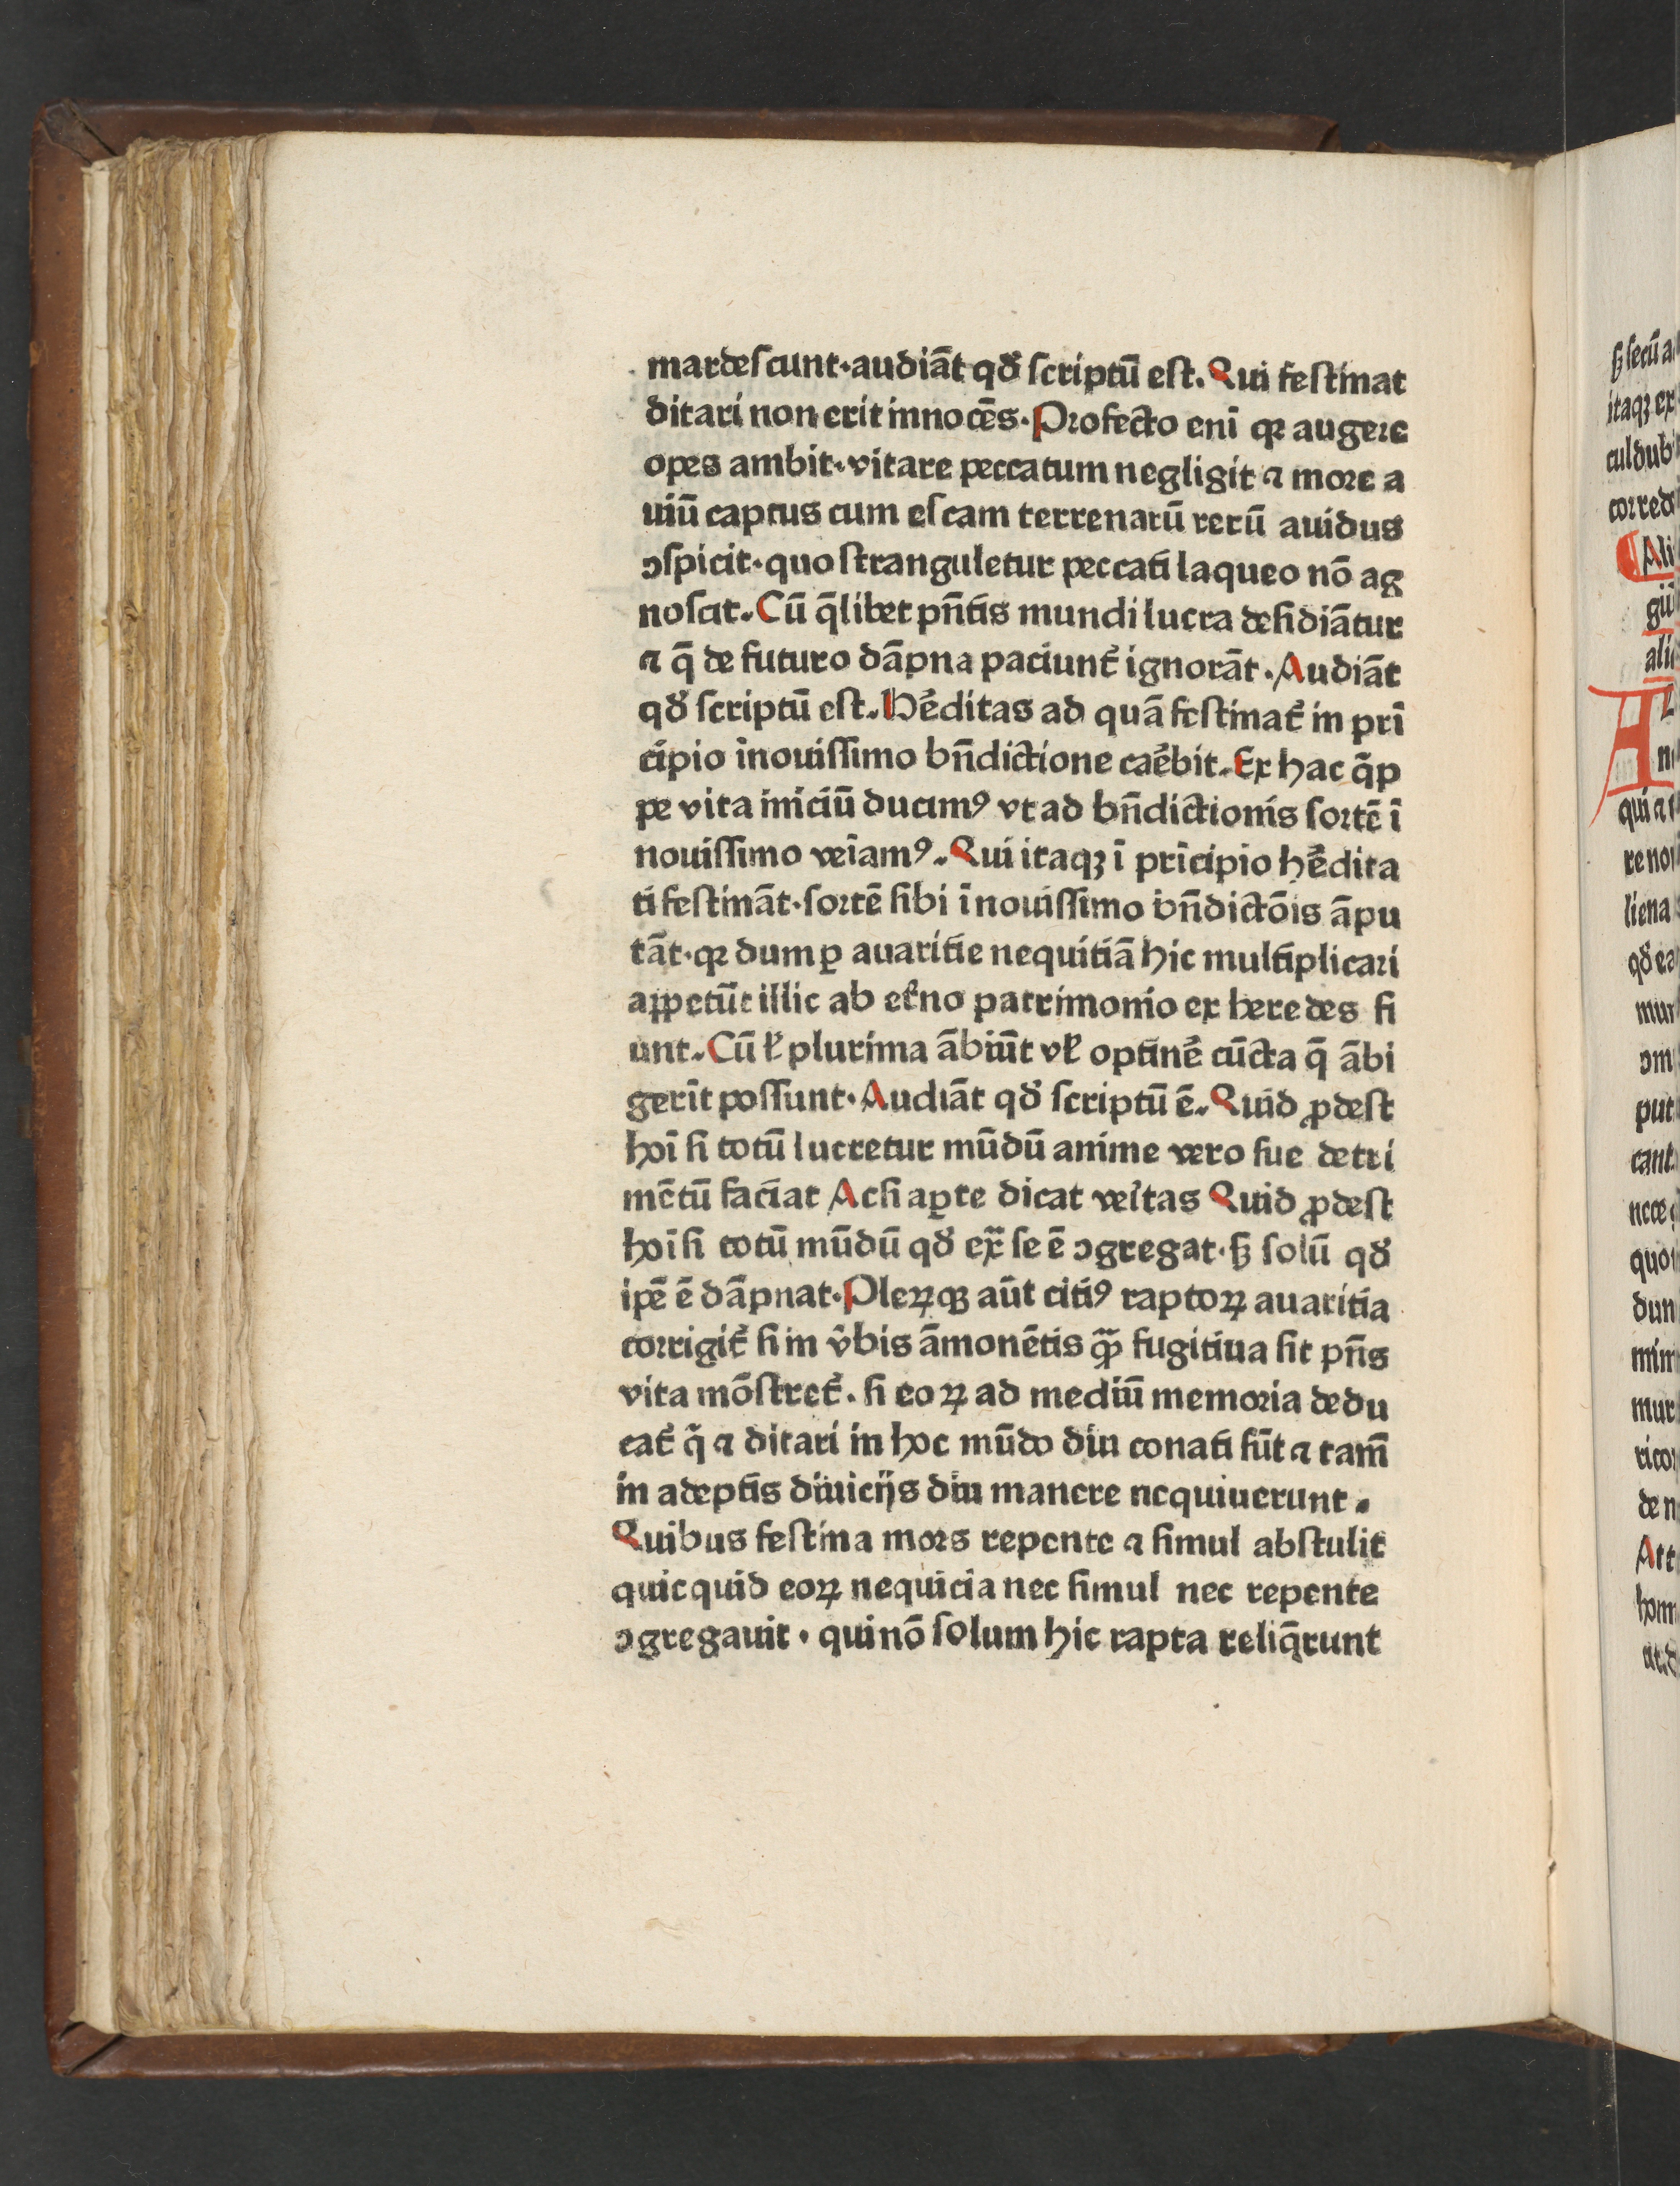 mardescunt·audiāt qđ scriptū est. Qui festinat
ditari non erit innocēs. Profecto enī qꝛ augere
opes ambit·vitare peccatum negligit ⁊ more a
uiū captus cum escam terrenarū rerū auidus
ↄspicit·quo stranguletur peccati laqueo nō ag
noscit. Cū q̄libet pn̄tis mundi lucra desidiātur
⁊ q̄ de futuro dāpna paciunt᷑ ignorāt. Audiāt
qđ scriptū est. Hēditas ad quā festinat᷑ in pri
cipio inouissimo bn̄dictione caēbit. Ex hac q̄p
pe vita iniciū ducimꝰ vt ad bn̄dictionis sortē ī
nouissimo veīamꝰ. Qui itaqꝫ ī prīcipio hēdita
ti festināt·sortē sibi ī nouissimo bn̄dictōis āpu
tāt·qꝛ dum ꝑ auaritie nequitiā hic multiplicari
aꝑpetūt illic ab et᷑no patrimonio ex heredes fi
unt. Cū ł plurima ābiūt vł optinē cūcta q̄ ābi
gerīt possunt. Audiāt qđ scriptū ē. Quid ꝓdest
hoī si totū lucretur mūdū anime vero sue detri
mētū faciat Ac si aꝑte dicat veītas Quid ꝓdest
hoī si totū mūdū qđ ex̄ se ē ↄgregat·sꝫ solū qđ
ipē ē dāpnat. Pleꝝqꝫ aūt citiꝰ raptoꝝ auaritia
corrigit᷑ si in v̄bis āmonētis qꝙ̄ fugitiua sit pn̄s
vita mōstret᷑. si eoꝝ ad mediū memoria dedu
cat᷑ q̄ ⁊ ditari in hoc mūdo diu conati sūt ⁊ tam̄
in adeptis diuicijs diu manere nequiuerunt.
Quibus festina mors repente ⁊ simul abstulit
quicquid eoꝝ nequicia nec simul nec repente
ↄgregauit· qui nō solum hic rapta reliq̄runt
sꝫ secū a
itaqꝫ ex
cul dub
corred
Ali
gii
ali
A
qui ⁊
re no
liena
qđ ea
mun
ↄm
put
cant
nece
quo
dun
mur
rico
de n
Att
hom